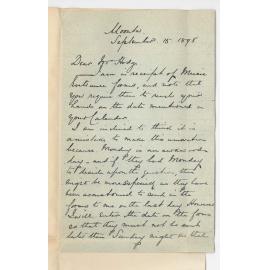 Moonta
September 15 1898
Dear Mr Hodge
I am in receipt of Music
Entrance forms, and note that
you require them to reach your
hands on the date mentioned in
your Calendar.
I am inclined to think it is
a mistake to make this innovation
because Monday is an awkward
day - and if they had Monday
to decide upon the question, there
might be more especially as they have
been accustomed to send in the
forms to me on the last day. However
I will enter the date on the forms
so that they must not be sent
later than Sunday night or that